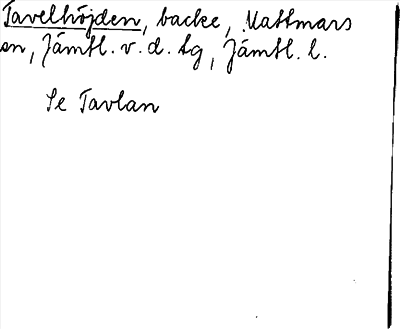 Tavelhöjden, backe, Mattmars
sn, Jämtl. v. d. tg, Jämtl. l.
Se Tavlan